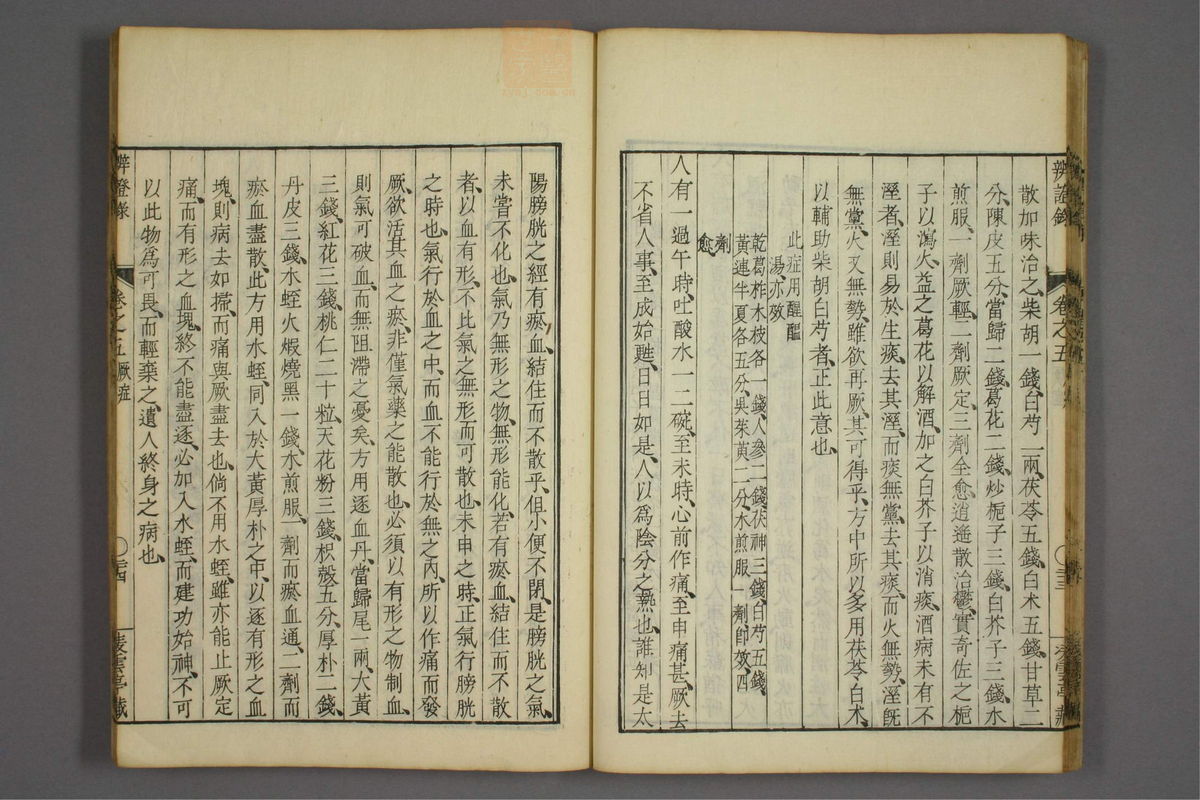 散加味治之、柴胡一錢、白芍一兩、茯苓五錢、白术五錢、甘草二
分、陳皮五分、當歸二錢、葛花二錢、炒梔子三錢、白芥子三錢、水
煎服、一劑厥輕、二劑厥定、三劑全愈、逍遙散治鬱、實奇佐之梔
子以瀉火、益之葛花以解酒、加之白芥子以消痰、酒病未有不
溼者、溼則易於生痰、去其溼、而痰無黨、去其痰、而火無勢、溼旣
無黨、火又無勢、雖欲再厥、其可得乎、方中所以多用茯苓、白术、
以輔助柴胡白芍者、正此意也、
此症用醒醞
湯、亦效
乾葛柞木枝各一錢、人參二錢、茯神三錢、白芍五錢、
黃連半夏各五分、吳茱萸二分、水煎服一劑、卽效、四
劑
愈
人有一過午時、吐酸水一二碗、至未時、心前作痛、至申痛甚、厥去
不省人事、至戍始甦、日日如是、人以爲陰分之熱也、誰知是太
辨證錄
卷之五
陽膀胱之經有瘀血結住而不散乎、但小便不閉、是膀胱之氣、
未嘗不化也、氣乃無形之物、無形能化、若有瘀血結住而不散
者、以血有形、不比氣之無形而可散也、未申之時、正氣行膀胱
之時也、氣行於血之中、而血不能行於無之內、所以作痛而發
厥、欲活其血之瘀、非僅氣藥之能散也、必須以有形之物制血、
則氣可破血、而無阻滯之憂矣、方用逐血丹、當歸尾一兩、大黃
三錢、紅花三錢、桃仁二十粒、天花粉三錢、枳殼五分、厚朴二錢、
丹皮三錢、水蛭火煅燒黑一錢、水煎服、一劑而瘀血通、二劑而
瘀血盡散、此方用水蛭、同入於大黃厚朴之中、以逐有形之血
塊、則病去如掃、而痛與厥盡去也、倘不用水蛭、雖亦能止厥定
痛、而有形之血塊、終不能盡逐、必加入水蛭、而建功始神、不可
以此物爲可畏、而輕棄之、遺人終身之病也、
辨證錄
卷之五 厥症